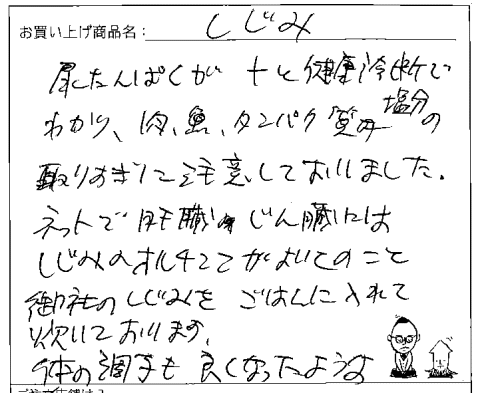 お買い上げ商品名: しじみ
尿たんぱくが 十と健康診断で
わかり、肉、魚、タンパク質や塩分の
取りすぎに注意しておりました。
ネットで肝臓 じん臓には
しじみのオルチニンがよいとのこと
御社のしじみを ごはんに入れて
炊いております、
体の調子も良くなったようす